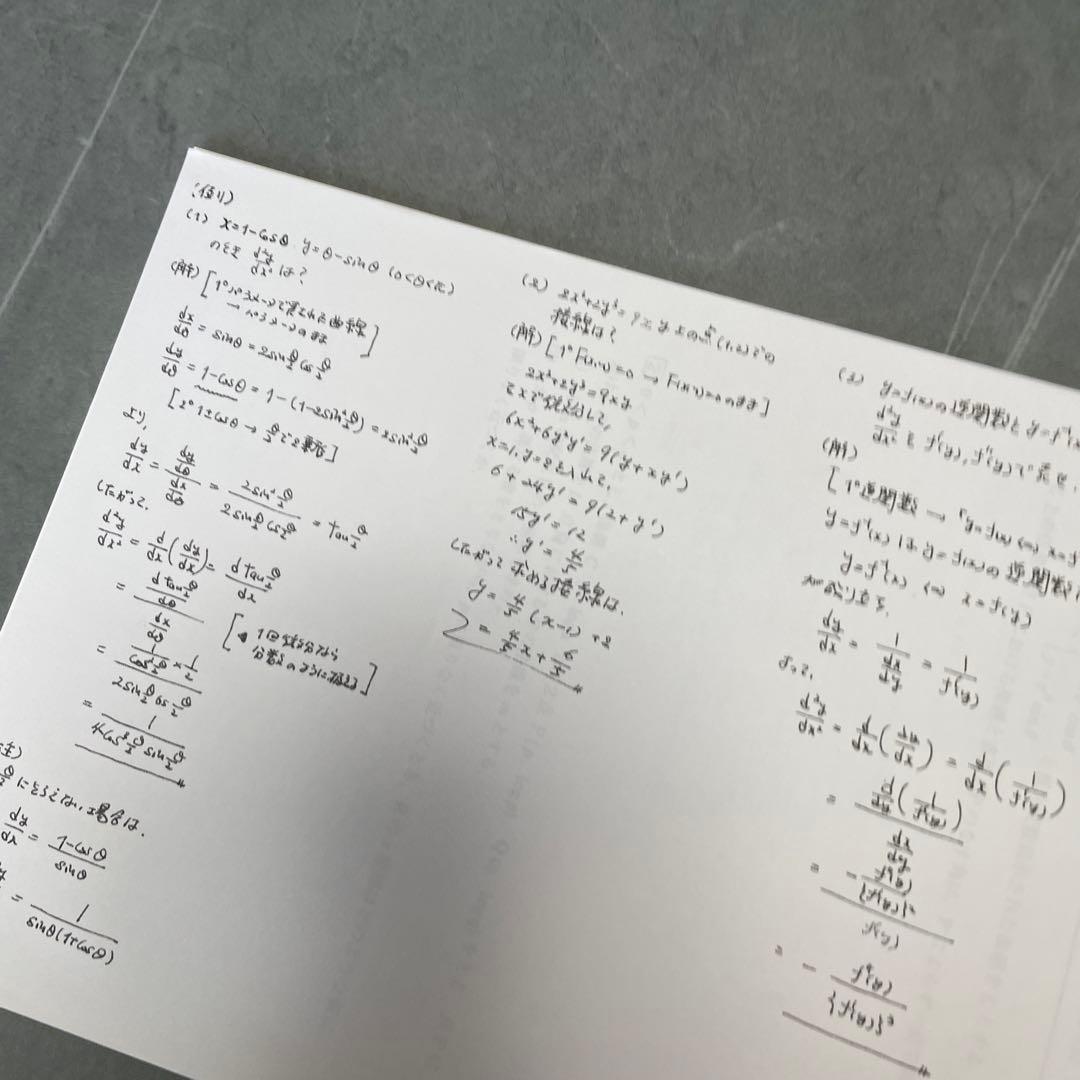 (例1)
(1) x=1-cosθ y=θ-sinθ (0<θ<π)
のとき d²y/dx² は?
(解) [1° パラメータで表された曲線
→ パラメータのまま]
dx/dθ = sinθ = 2sin θ/2 cos θ/2
dy/dθ = 1-cosθ = 1-(1-2sin² θ/2) = 2sin² θ/2
[2° 1±cosθ → θ/2で2乗に]
より,
dy/dx = (dy/dθ)/(dx/dθ) = (2sin² θ/2)/(2sin θ/2 cos θ/2) = tan θ/2
したがって,
d²y/dx² = d/dx (dy/dx) = (d tan θ/2)/dx
= (d tan θ/2 /dθ)/(dx/dθ)
[1回微分なら
分数のように]
= (1/(cos² θ/2) × 1/2)/(2sin θ/2 cos θ/2)
= 1/(4cos³ θ/2 sin θ/2)
注)
θ/2 にそろえない場合は,
dy/dx = (1-cosθ)/sinθ
= 1/(sinθ(1+cosθ))
(2) 2x³+2y³=9xy 上の点(1,2)での
接線は?
(解) [1° F(x,y)=0 → F(x,y)=0のまま]
2x³+2y³=9xy
をxで微分して,
6x²+6y²y'=9(y+xy')
x=1, y=2を入れて,
6+24y'=9(2+y')
15y'=12
∴ y'=4/5
したがって 求める接線は,
y=4/5(x-1)+2
=4/5x+6/5
(3) y=f(x)の逆関数を y=f⁻¹(x)
d²y/dx² を f'(y), f''(y)で表せ.
(解)
[1° 逆関数 → 「y=f(x) ⇔ x=f
y=f⁻¹(x) は y=f(x)の逆関数
y=f⁻¹(x) ⇔ x=f(y)
が成り立ち,
dy/dx = 1/(dx/dy) = 1/f'(y)
よって,
d²y/dx² = d/dx (dy/dx) = d/dx (1/f'(y))
= (d/dy (1/f'(y)))/(dx/dy)
= (-f''(y)/{f'(y)}²)/f'(y)
= - f''(y)/{f'(y)}³